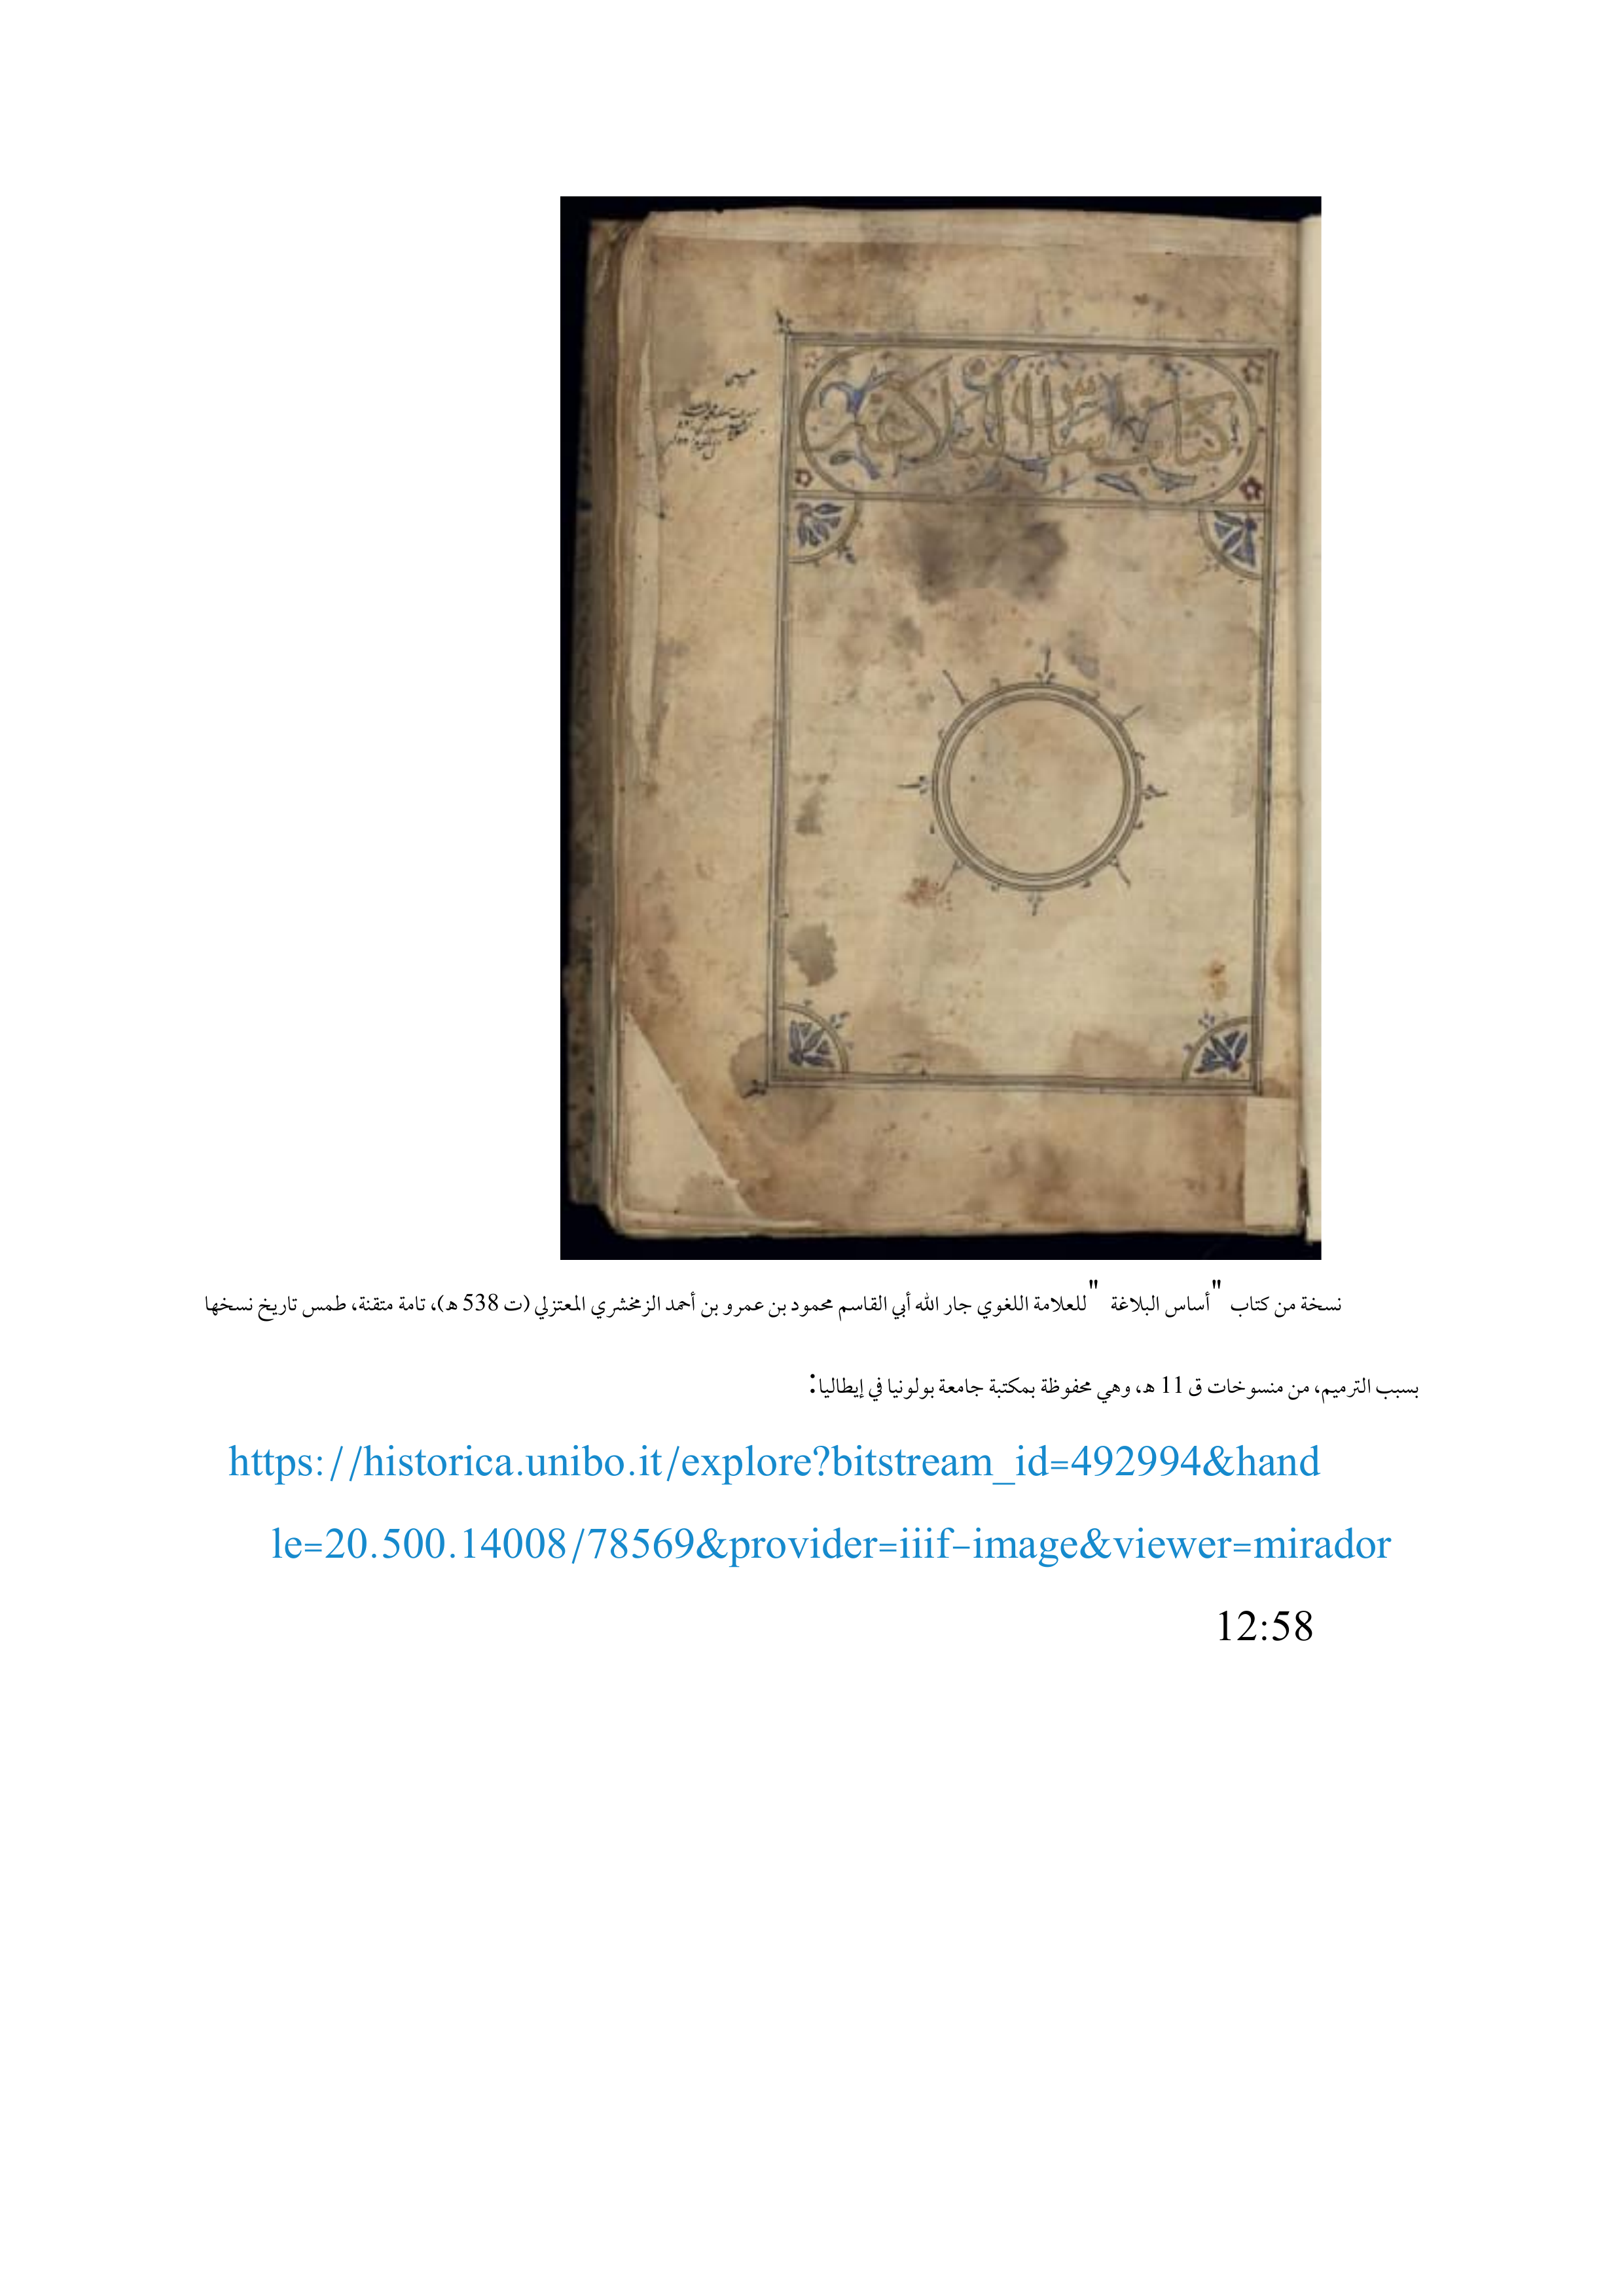 كتاب أساس البلاغة
نسخة من كتاب "أساس البلاغة" للعلامة اللغوي جار الله أبي القاسم محمود بن عمرو بن أحمد الزمخشري المعتزلي (ت 538 هـ)، تامة متقنة، طمس تاريخ نسخها
بسبب الترميم، من منسوخات ق 11 هـ، وهي محفوظة بمكتبة جامعة بولونيا في إيطاليا:
https://historica.unibo.it/explore?bitstream_id=492994&hand
le=20.500.14008/78569&provider=iiif-image&viewer=mirador
12:58